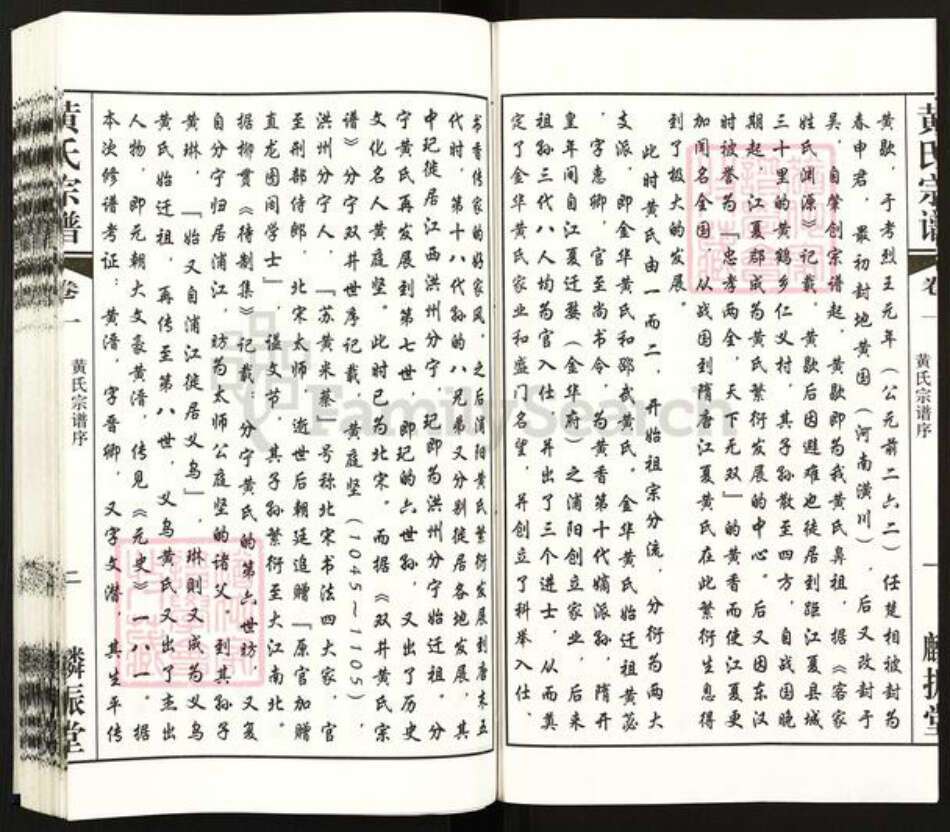 黄氏宗谱
卷一
黄氏宗谱序
一
麟振堂
黄歇，于考烈王元年（公元前二六二）任楚相被封为
春申君，最初封地黄国（河南潢川），后又改封于
吴，自肇创宗谱起，黄歇即为我黄氏鼻祖，据《客家
姓氏渊源》记载，黄歇后因避难也徒居到距江夏县城
三十里的黄鹤乡仁义村，其子孙散至四方，自战国晚
期起，江夏郡成为黄氏繁衍发展的中心。后又因东汉
时被誉为『忠孝两全，天下无双』的黄香而使江夏更
加闻名全国，从战国到隋唐江夏黄氏在此繁衍生息得
到了极大的发展。
此时黄氏由一而二，开始祖宗分流，分衍为两大
支派，即金华黄氏和邵武黄氏。金华黄氏始迁祖黄苾
，字惠卿，官至尚书令，为黄香第十代嫡派孙，隋开
皇年间自江夏迁婺（金华府）之浦阳创立家业，后来
祖孙三代八人均为官入仕，并出了三个进士，从而奠
定了金华黄氏家业和盛门名望，并创立了科举入仕、
书香传家的好家风，之后浦阳黄氏繁衍发展到唐末五
代时，第十八代孙的八兄弟又分别徙居各地发展，其
中玘徙居江西洪州分宁，玘即为洪州分宁始迁祖。分
宁黄氏再发展到第七世，即玘的六世孙，又出了历史
文化名人黄庭坚。此时已为北宋。而据《双井黄氏宗
谱》分宁双井世序记载，黄庭坚（1045～1105），
洪州分宁人，「苏黄米蔡」号称北宋书法四大家，官
至刑部侍郎，北宋太师，逝世后朝廷追赠「原官加赠
直龙图阁学士」，谥文节，其子孙繁衍至大江南北。
据柳贯《待制集》记载：分宁黄氏的第六世坊，又复
自分宁归居浦江，坊为太师公庭坚的诸父，到其孙子
黄琳，「始又自浦江徙居义乌」，琳则又成为义乌
黄氏始迁祖，再传至第八世，义乌黄氏又出了杰出
人物，即元朝大文豪黄溍，传见《元史》一八一。据
本次修谱考证：黄溍，字晋卿，又字文潜，其生平传
黄氏宗谱
卷一
黄氏宗谱序
二
麟振堂
FamilySearch